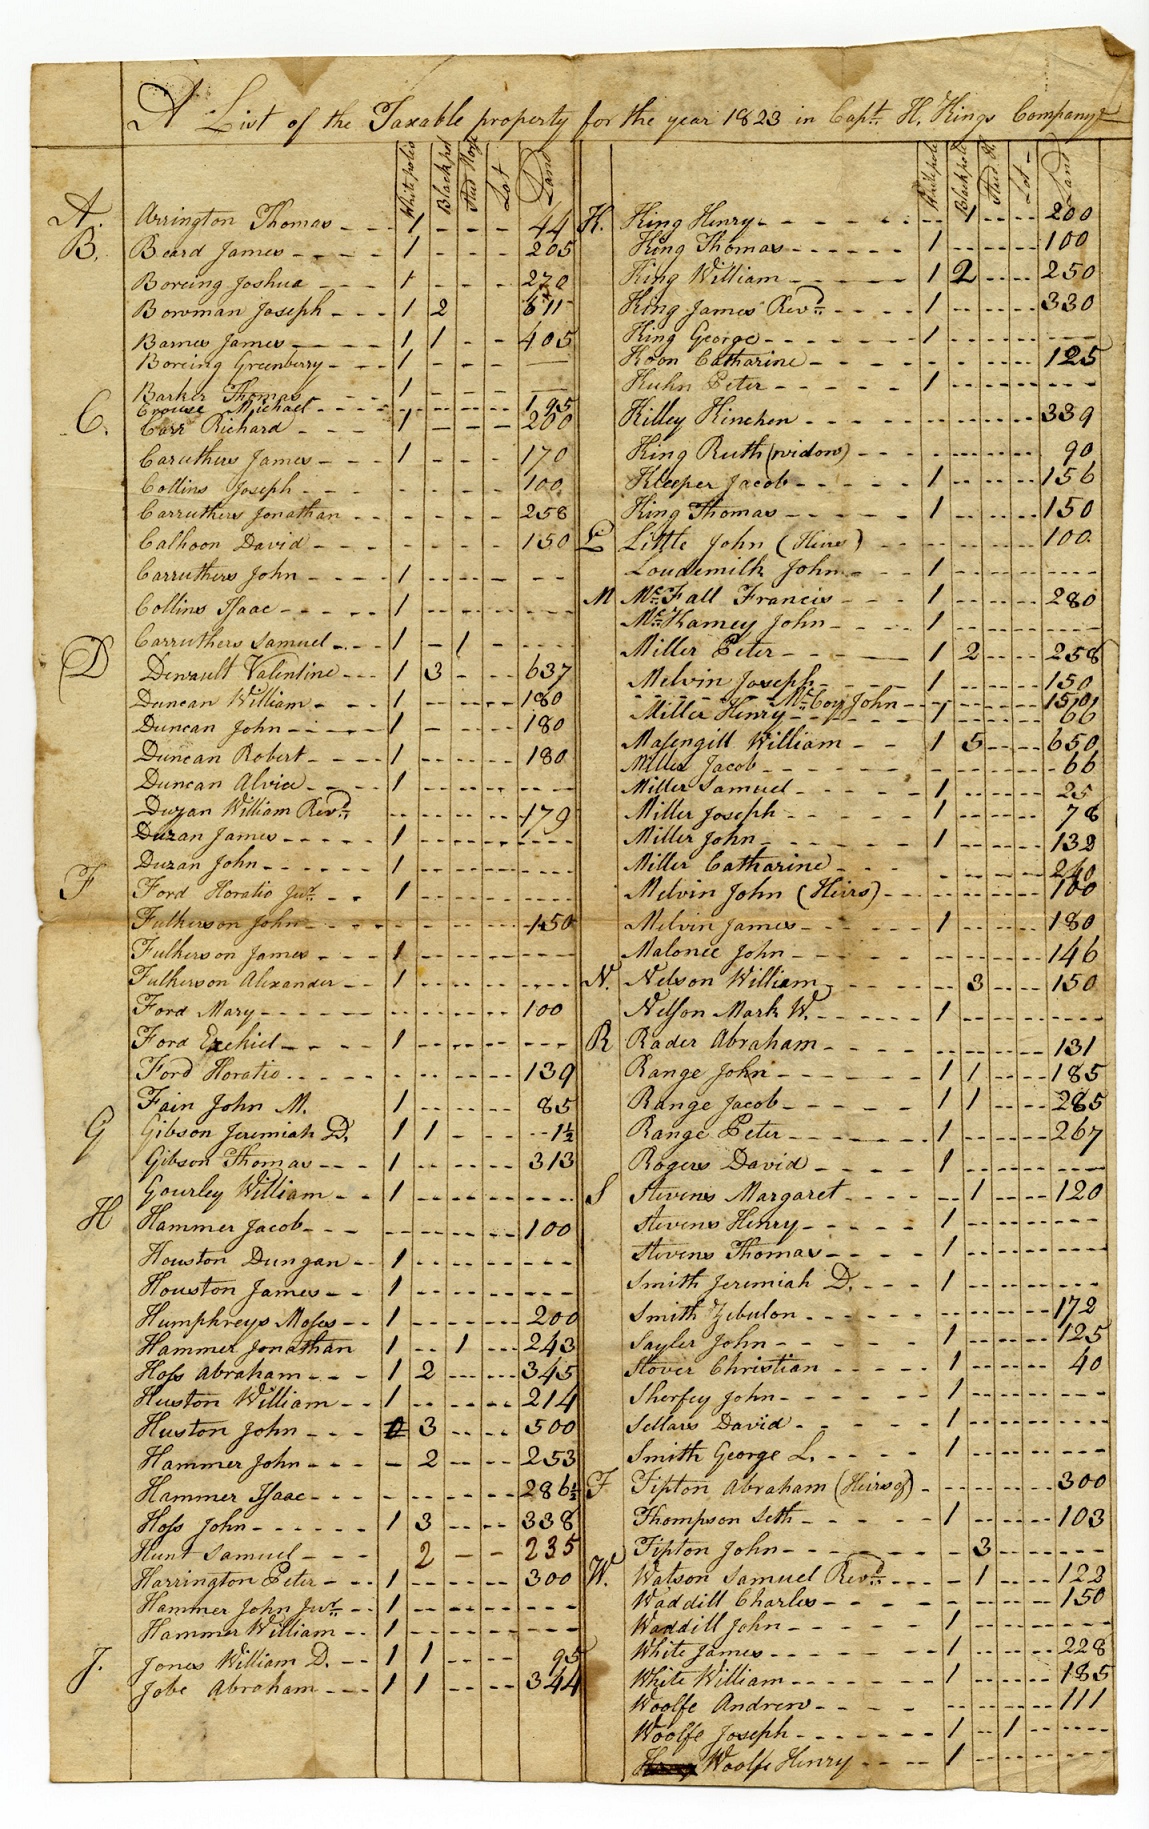 A List of the Taxable property for the year 1823 in Capt. H. Kings Company
White polls Black pol Stud Hors Lot Land
A. Arrington Thomas 1 - - - 44
B. Beard James 1 - - - 205
Boreing Joshua 1 - - - 270
Bowman Joseph 1 2 611
Barnes James 1 1 - - 405
Boreing Greenberry 1 - - -
Barker Thomas 1 - - -
Crouse Michael 195
C. Carr Richard 1 - - - 200
Caruthers James 1 - - - 170
Collins Joseph - - - - 100
Carruthers Jonathan - - - - 258
Calhoon David - - - - 150
Carruthers John 1 - - - - -
Collins Isaac 1 - - - - -
Carruthers Samuel 1 - 1 - - -
D Dewault Valentine 1 3 - - 637
Duncan William 1 - - - 180
Duncan John 1 - - - 180
Duncan Robert 1 - - - 180
Duncan Alvia 1 - - - - -
Duzan William Revd. - - - - 179
Duzan James 1 - - - - -
Duzan John 1 - - - - -
F Ford Horatio Junr. 1 - - - - -
Fulkerson John - - - - 150
Fulkerson James 1 - - - - -
Fulkerson Alexander 1 - - - - -
Ford Mary - - - - 100
Ford Ezekiel 1 - - - - -
Ford Horatio - - - - 139
Fain John M. 1 - - - 85
G Gibson Jeremiah D. 1 1 - - - 1½
Gibson Thomas 1 - - - 313
Gourley William 1 - - - - -
H Hammer Jacob - - - - 100
Houston Dungan 1 - - - - -
Houston James 1 - - - - -
Humphreys Moses 1 - - - 200
Hammer Jonathan 1 - 1 - 243
Hoss Abraham 1 2 - - 345
Huston William 1 - - - 214
Huston John 3 - - 500
Hammer John - 2 - - 253
Hammer Isaac - - - - 286½
Hoss John 1 3 - - 338
Hunt Samuel 2 - - 235
Harrington Peter 1 - - - 300
Hammer John Junr. 1 - - - - -
Hammer William 1 - - - - -
J. Jones William D. 1 1 - - 95
Jobe Abraham 1 1 - - 344
White pole Black pole Stud H. Lot Land
K. King Henry - 1 - - 200
King Thomas 1 - - - 100
King William 1 2 - - 250
King James Revd. 1 - - - 330
King George 1 - - - - -
Koon Catharine - - - - 125
Kuhn Peter 1 - - - - -
Killey Kinchen - - - - 339
King Ruth (widow) - - - - 90
Kleeper Jacob 1 - - - 156
King Thomas 1 - - - 150
L Little John (Heirs) - - - - 100
Loudemilk John 1 - - - - -
M McFall Francis 1 - - - 280
McKamey John 1 - - - - -
Miller Peter 1 2 - - 258
Melvin Joseph 1 - - - 150
McCoy John - - - - 150
Miller Henry 1 - - - 66
Masengill William 1 5 - - 650
Miller Jacob - - - - 66
Miller Samuel 1 - - - 25
Miller Joseph 1 - - - 78
Miller John 1 - - - 132
Miller Catharine - - - - 240
Melvin John (Heirs) - - - - 100
Melvin James 1 - - - 180
Malonee John - - - - 146
N. Nelson William - 3 - - 150
Nelson Mark W. 1 - - - - -
R Rader Abraham - - - - 131
Range John 1 1 - - 185
Range Jacob 1 1 - - 285
Range Peter 1 - - - 267
Rogers David 1 - - - - -
S Stevens Margaret - 1 - - 120
Stevens Henry 1 - - - - -
Stevens Thomas 1 - - - - -
Smith Jeremiah D. 1 - - - - -
Smith Zebulon - - - - 172
Sayler John 1 - - - 125
Stover Christian 1 - - - 40
Sherfey John 1 - - - - -
Sellars David 1 - - - - -
Smith George L. 1 - - - - -
T Tipton Abraham (Heirs of) - - - - 300
Thompson Seth 1 - - - 103
Tipton John - 3 - - - -
W. Watson Samuel Revd. - 1 - - 122
Waddill Charles - - - - 150
Waddill John 1 - - - - -
White James 1 - - - 228
White William 1 - - - 185
Woolfe Andrew - - - - 111
Woolfe Joseph 1 - 1 - - -
Woolfe Henry 1 - - - - -